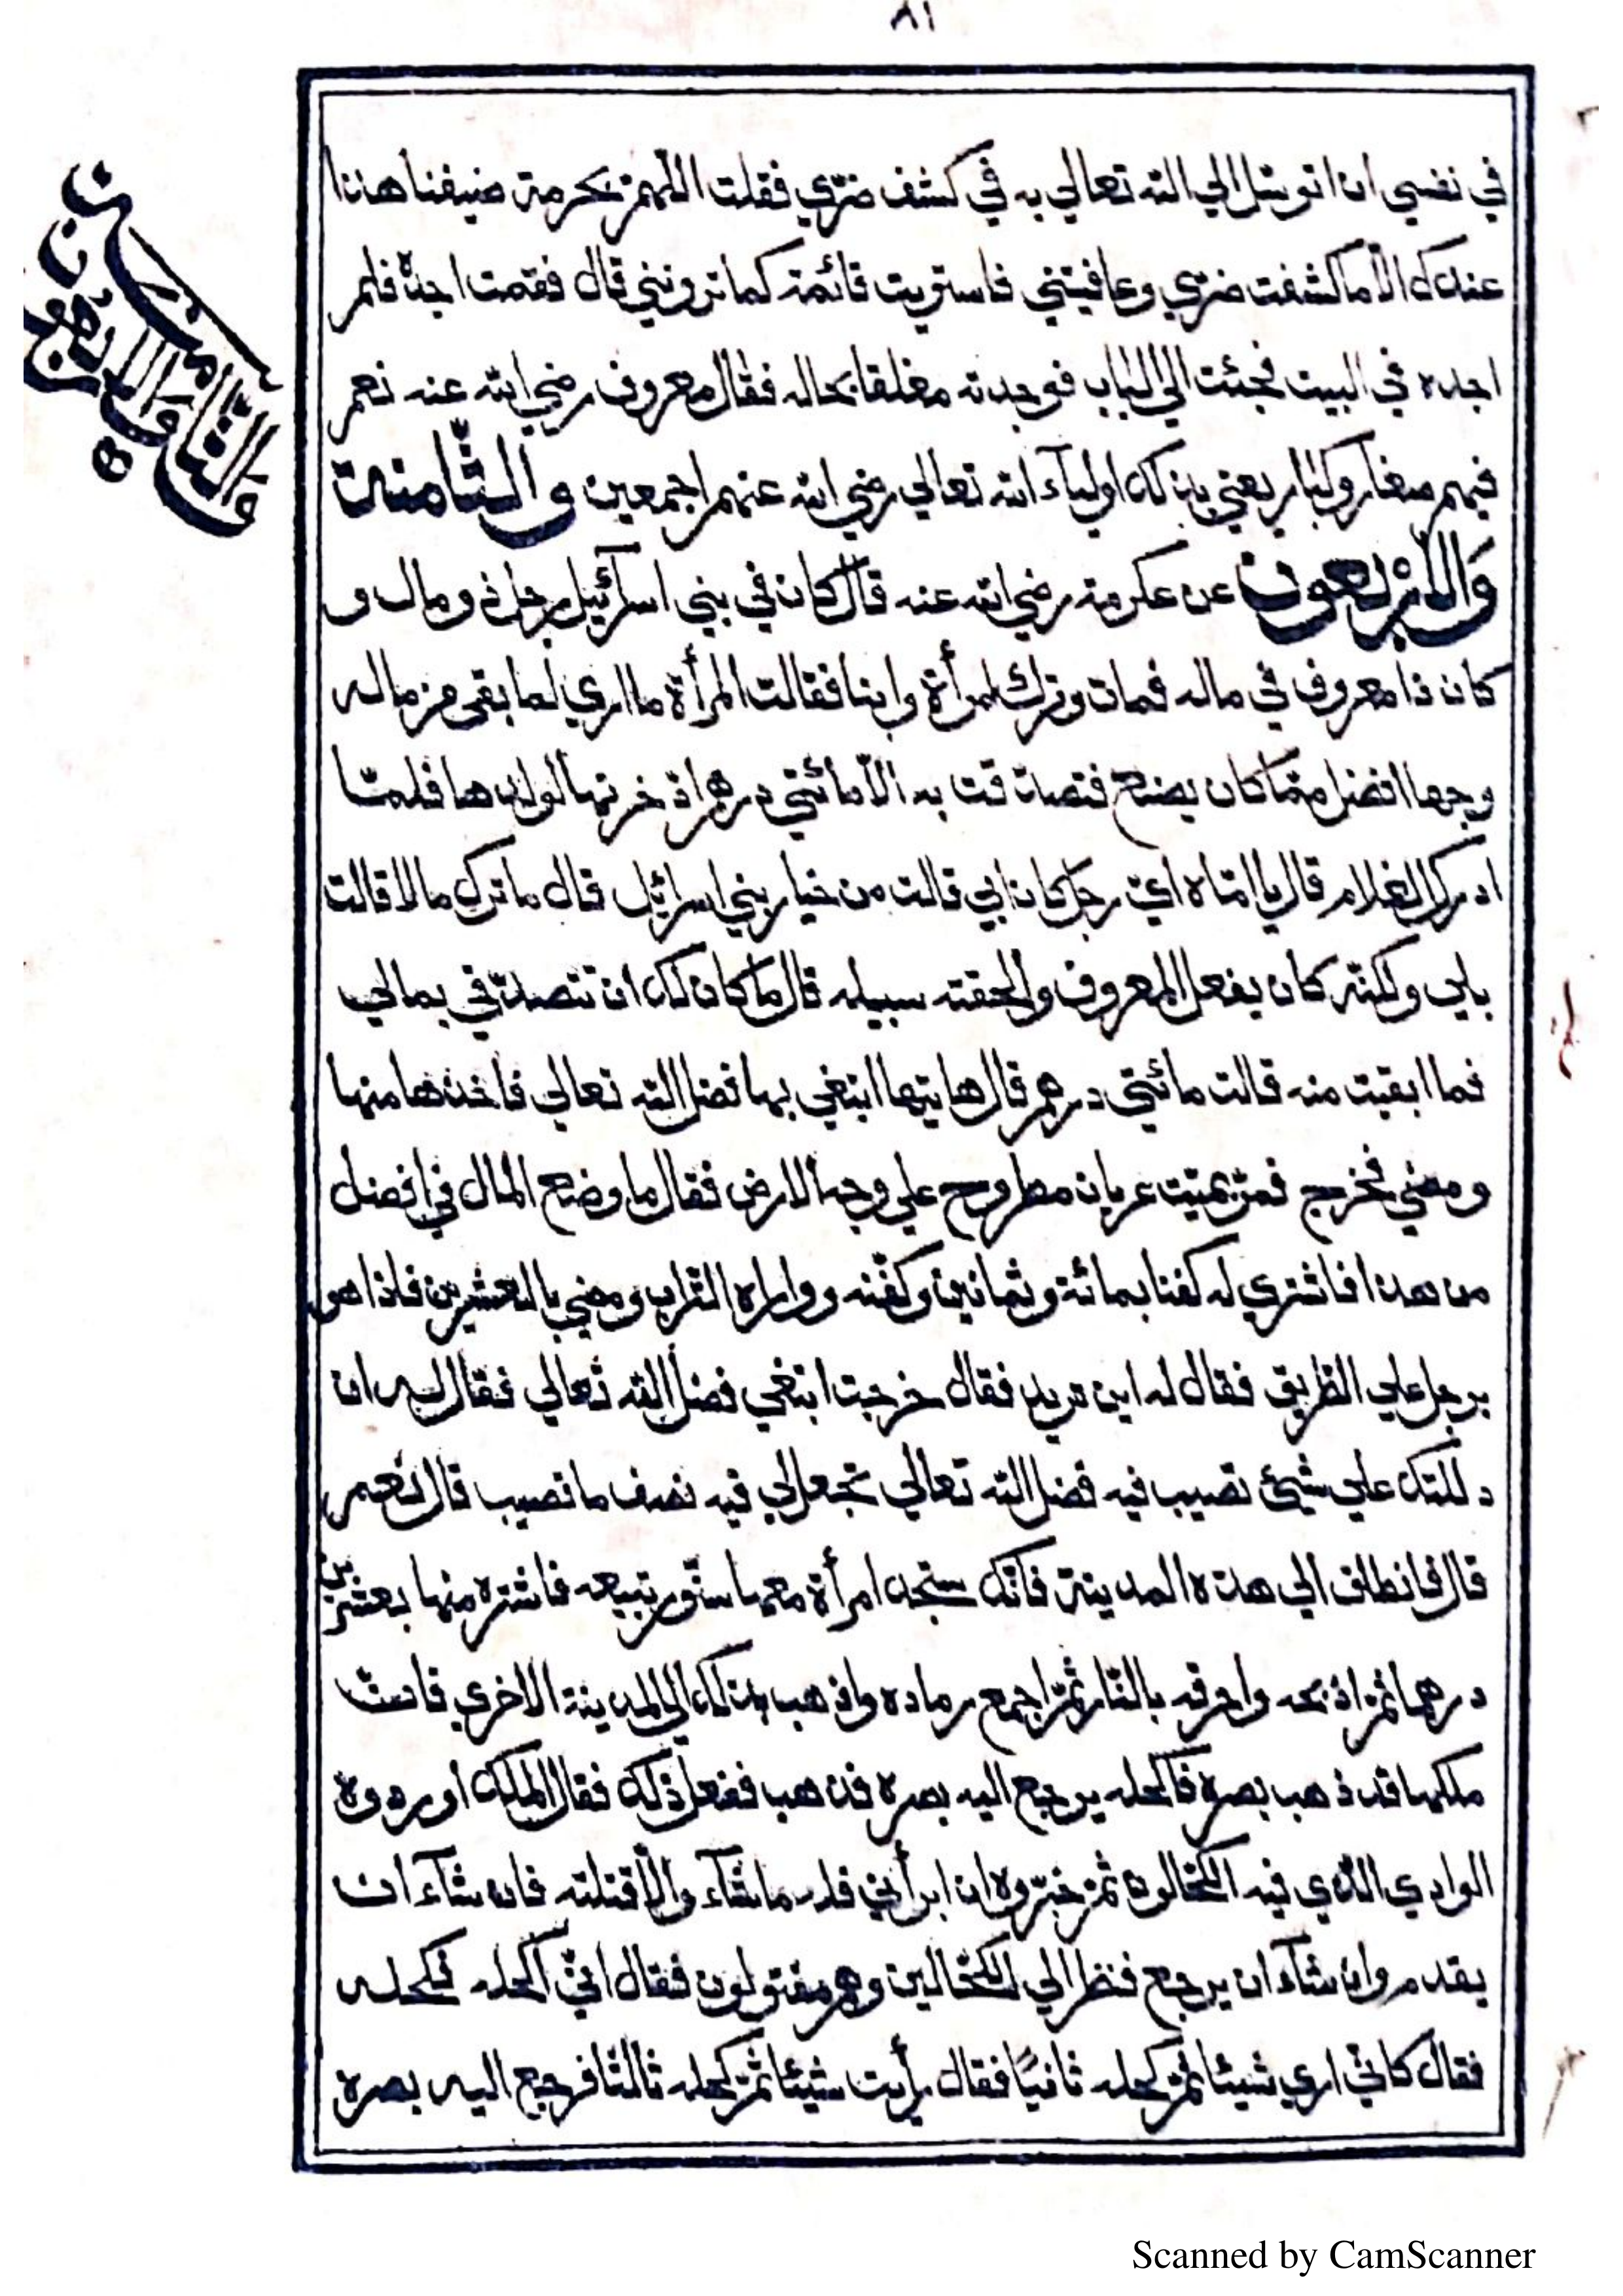 ٨١
في نفسي ان اتوسّل الي الله تعالي به في كشف ضرّي فقلت اللّهمّ بحرمة ضيفنا هذا
عندك الّا ما كشفت ضرّي وعافيتني فاستويت قائمة كما ترونني قال فقمت اجدّه فلم
اجده في البيت فجئت الي الباب فوجدته مغلقا بحاله فقال معروف رضي الله عنه نعم
فيهم صغار وكبار يعني بذلك اولياء الله تعالي رضي الله عنهم اجمعين والثّامنة
وَالْاَرْبعون عن عكرمة رضي الله عنه قال كان في بني اسرآئيل رجل ذو مال و
كان ذا معروف في ماله فمات وترك امرأة وابنا فقالت المرأة ما اري لما بقي من ماله
وجها افضل ممّا كان يصنع فتصدّقت به الّا مائتي درهم اذّخرتها لولدها فلمّا
ادرك الغلام قال يا امّاه ايّ رجل كان ابي قالت من خيار بني اسرائيل قال ما ترك مالا قالت
بلي ولكنّه كان يفعل المعروف والحقته سبيله قال ما كان لك ان تتصدّقي بمالي
فما ابقيت منه قالت مائتي درهم قال هاتيها ابتغي بها فضل الله تعالي فاخذها منها
ومضي فخرج فمرّ بميّت عريان مطروح علي وجه الارض فقال ما وضع المال في افضل
من هذا فاشتري له كفنا بمائة وثمانين وكفّنه وواراه التّراب ومضي بالعشرين فاذا هو
برجل علي الطّريق فقال له اين تريد فقال خرجت ابتغي فضل الله تعالي فقال له ان
دللتك علي شيئ تصيب فيه فضل الله تعالي تجعل لي فيه نصف ما تصيب قال نعم
قال فانطلق الي هذه المدينة فانّك ستجد امرأة معها سنّور تبيعه فاشتره منها بعشرين
درهما ثمّ اذبحه واحرقه بالنّار ثمّ اجمع رماده واذهب بذلك الي المدينة الاخري فانّ
ملكها قد ذهب بصره فاكحله يرجع اليه بصره فذهب ففعل ذلك فقال الملك اوردوه
الوادي الّذي فيه الكحّالون ثمّ خبّروه ان ابرأني فله ما شآء والّا قتلته فان شآء ان
يقدم وان شآء ان يرجع فنظر الي الكحّالين وهم مقتولون فقال انّي اكحله فكحله
فقال كانّي اري شيئا ثمّ كحله ثانيًا فقال رأيت شيئا ثمّ كحله ثالثا فرجع اليه بصره
Scanned by CamScanner